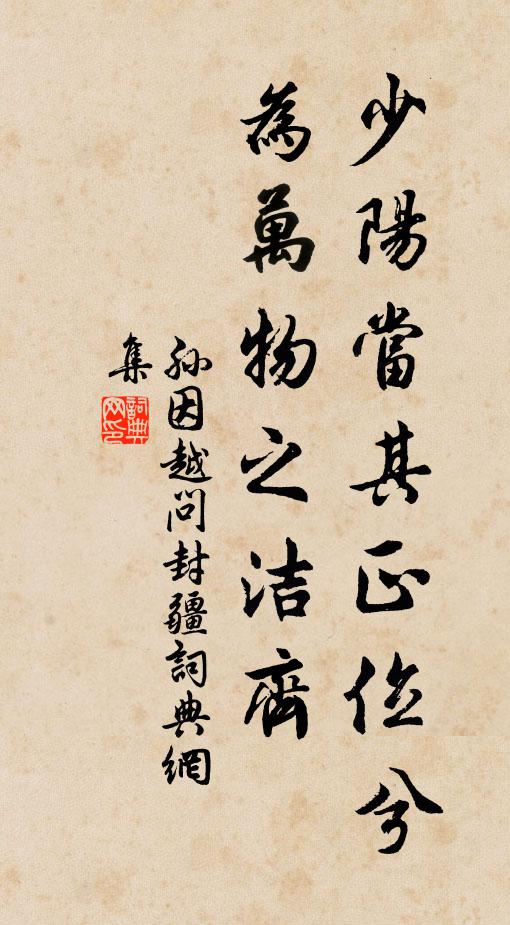 少陽當其正位兮
為萬物之洁齊
孙因越问封疆詞典網
集
詞典网印